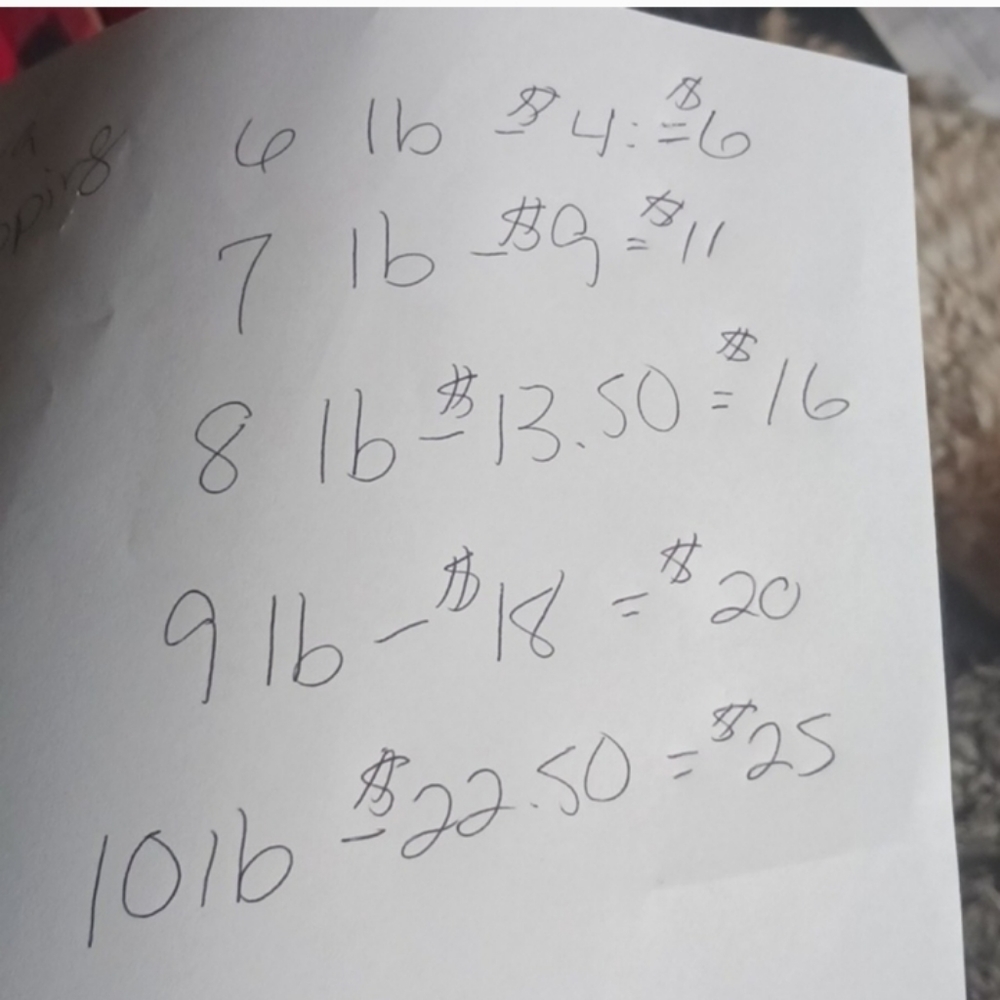 6 lb - $4: = $6
7 lb - $9 = $11
8 lb - $13.50 = $16
9 lb - $18 = $20
10 lb - $22.50 = $25